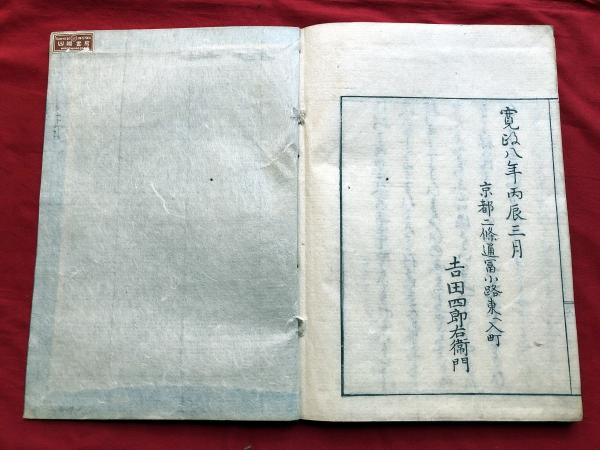 寛政八年丙辰三月
京都二條通冨小路東ヘ入町
吉田四郎右衛門